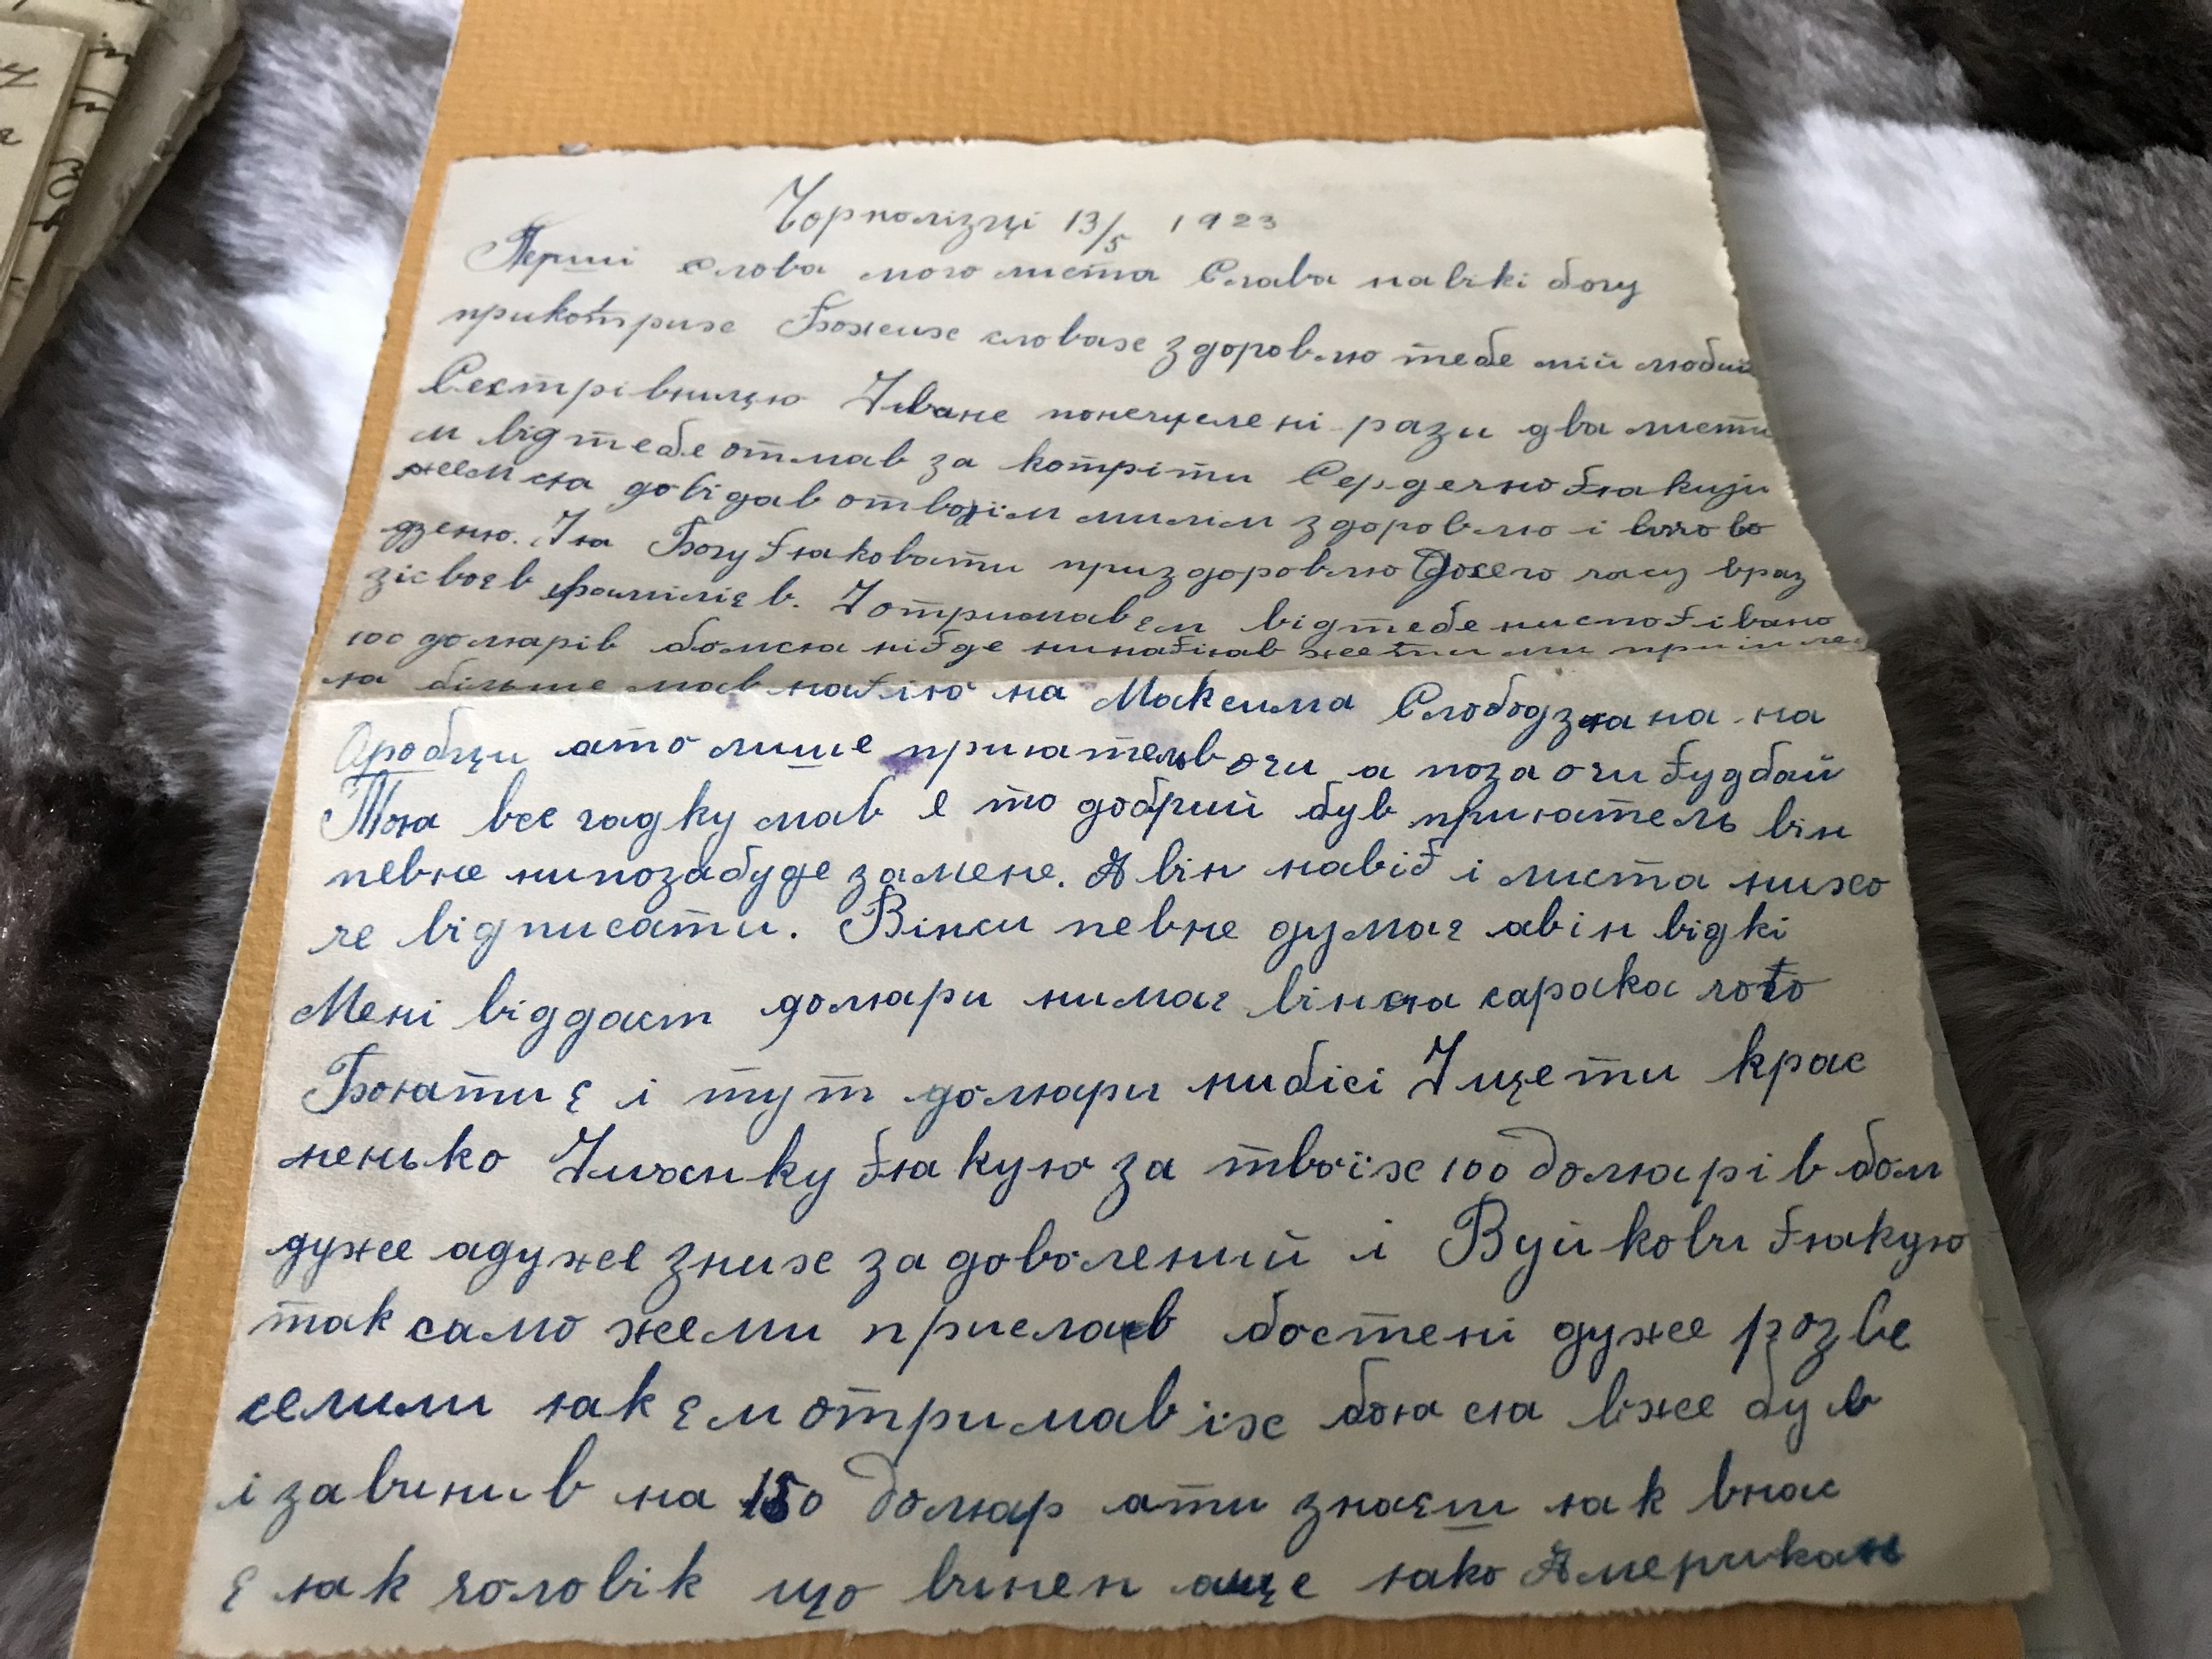 Чорнолізці 13/5 1923
Перші слова мого листа Слава навікі богу
прикотрих Божеих словах здоровлю тебе мій любий
Сестрівницю Іване понецилені рази два листи
м відтебе отмав за котріти Сердечно дякују
жем ся довідав отвојім милім здоровлю і
дзеню. Ія Богу дяковати приздоровлю Досего часу враз
зісвоєв фамілієв. Іотримавєм відтебе нисподівано
100 долярів бомся нігде нинадіяв жети ми
я більше мав надію на Максима Слободзяна на
Дробци ато лише приятельв очи а поза очи будбай
Тоя все гадку мав е то добрий був приятель він
певне нипозабуде замене. А він навід і листа нихо
че відписати. Вінси певне думає авін відкі
Мені віддаст доляри нимає вінся сарака чого
Бояти є і тут доляри нибісі Іщети крас
ненько Імханку дякую за твоїх 100 долярів бом
дуже адуже зних задоволений і Вуйкови дякую
так само жеми прислав бостені дуже розве
селили як єм отримав їх боя ся вже був
і завинив на 150 доляр ати знаєш як внас
є як чоловік що винен аще яко Американ